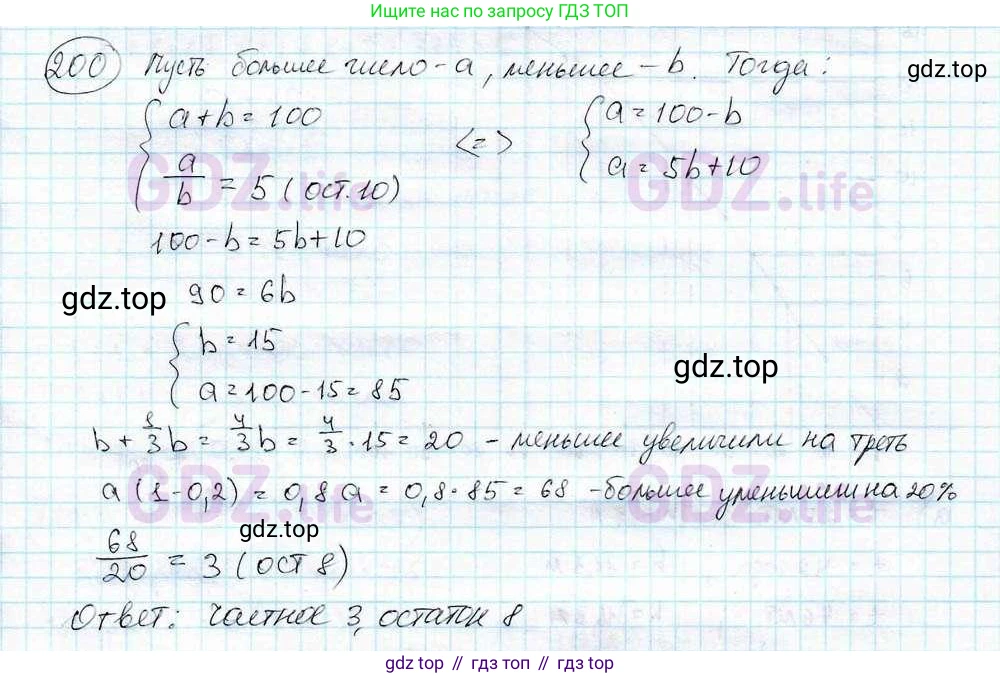 Ищите нас по запросу ГДЗ ТОП
200 Пусть большее число - a, меньшее - b. Тогда:
gdz.top
{ a + b = 100 <=> { a = 100 - b
a/b = 5 (ост. 10) a = 5b + 10
GDZ.life GDZ.life
100 - b = 5b + 10
gdz.top 90 = 6b
{ b = 15
a = 100 - 15 = 85
gdz.top
b + 1/3 b = 4/3 b = 4/3 · 15 = 20 - меньшее увеличили на треть
a (1 - 0,2) = 0,8 a = 0,8 · 85 = 68 - большее уменьшили на 20%
GDZ.life GDZ.life
gdz.top
68/20 = 3 (ост 8)
Ответ: частное 3, остаток 8
gdz.top // гдз топ // гдз.top